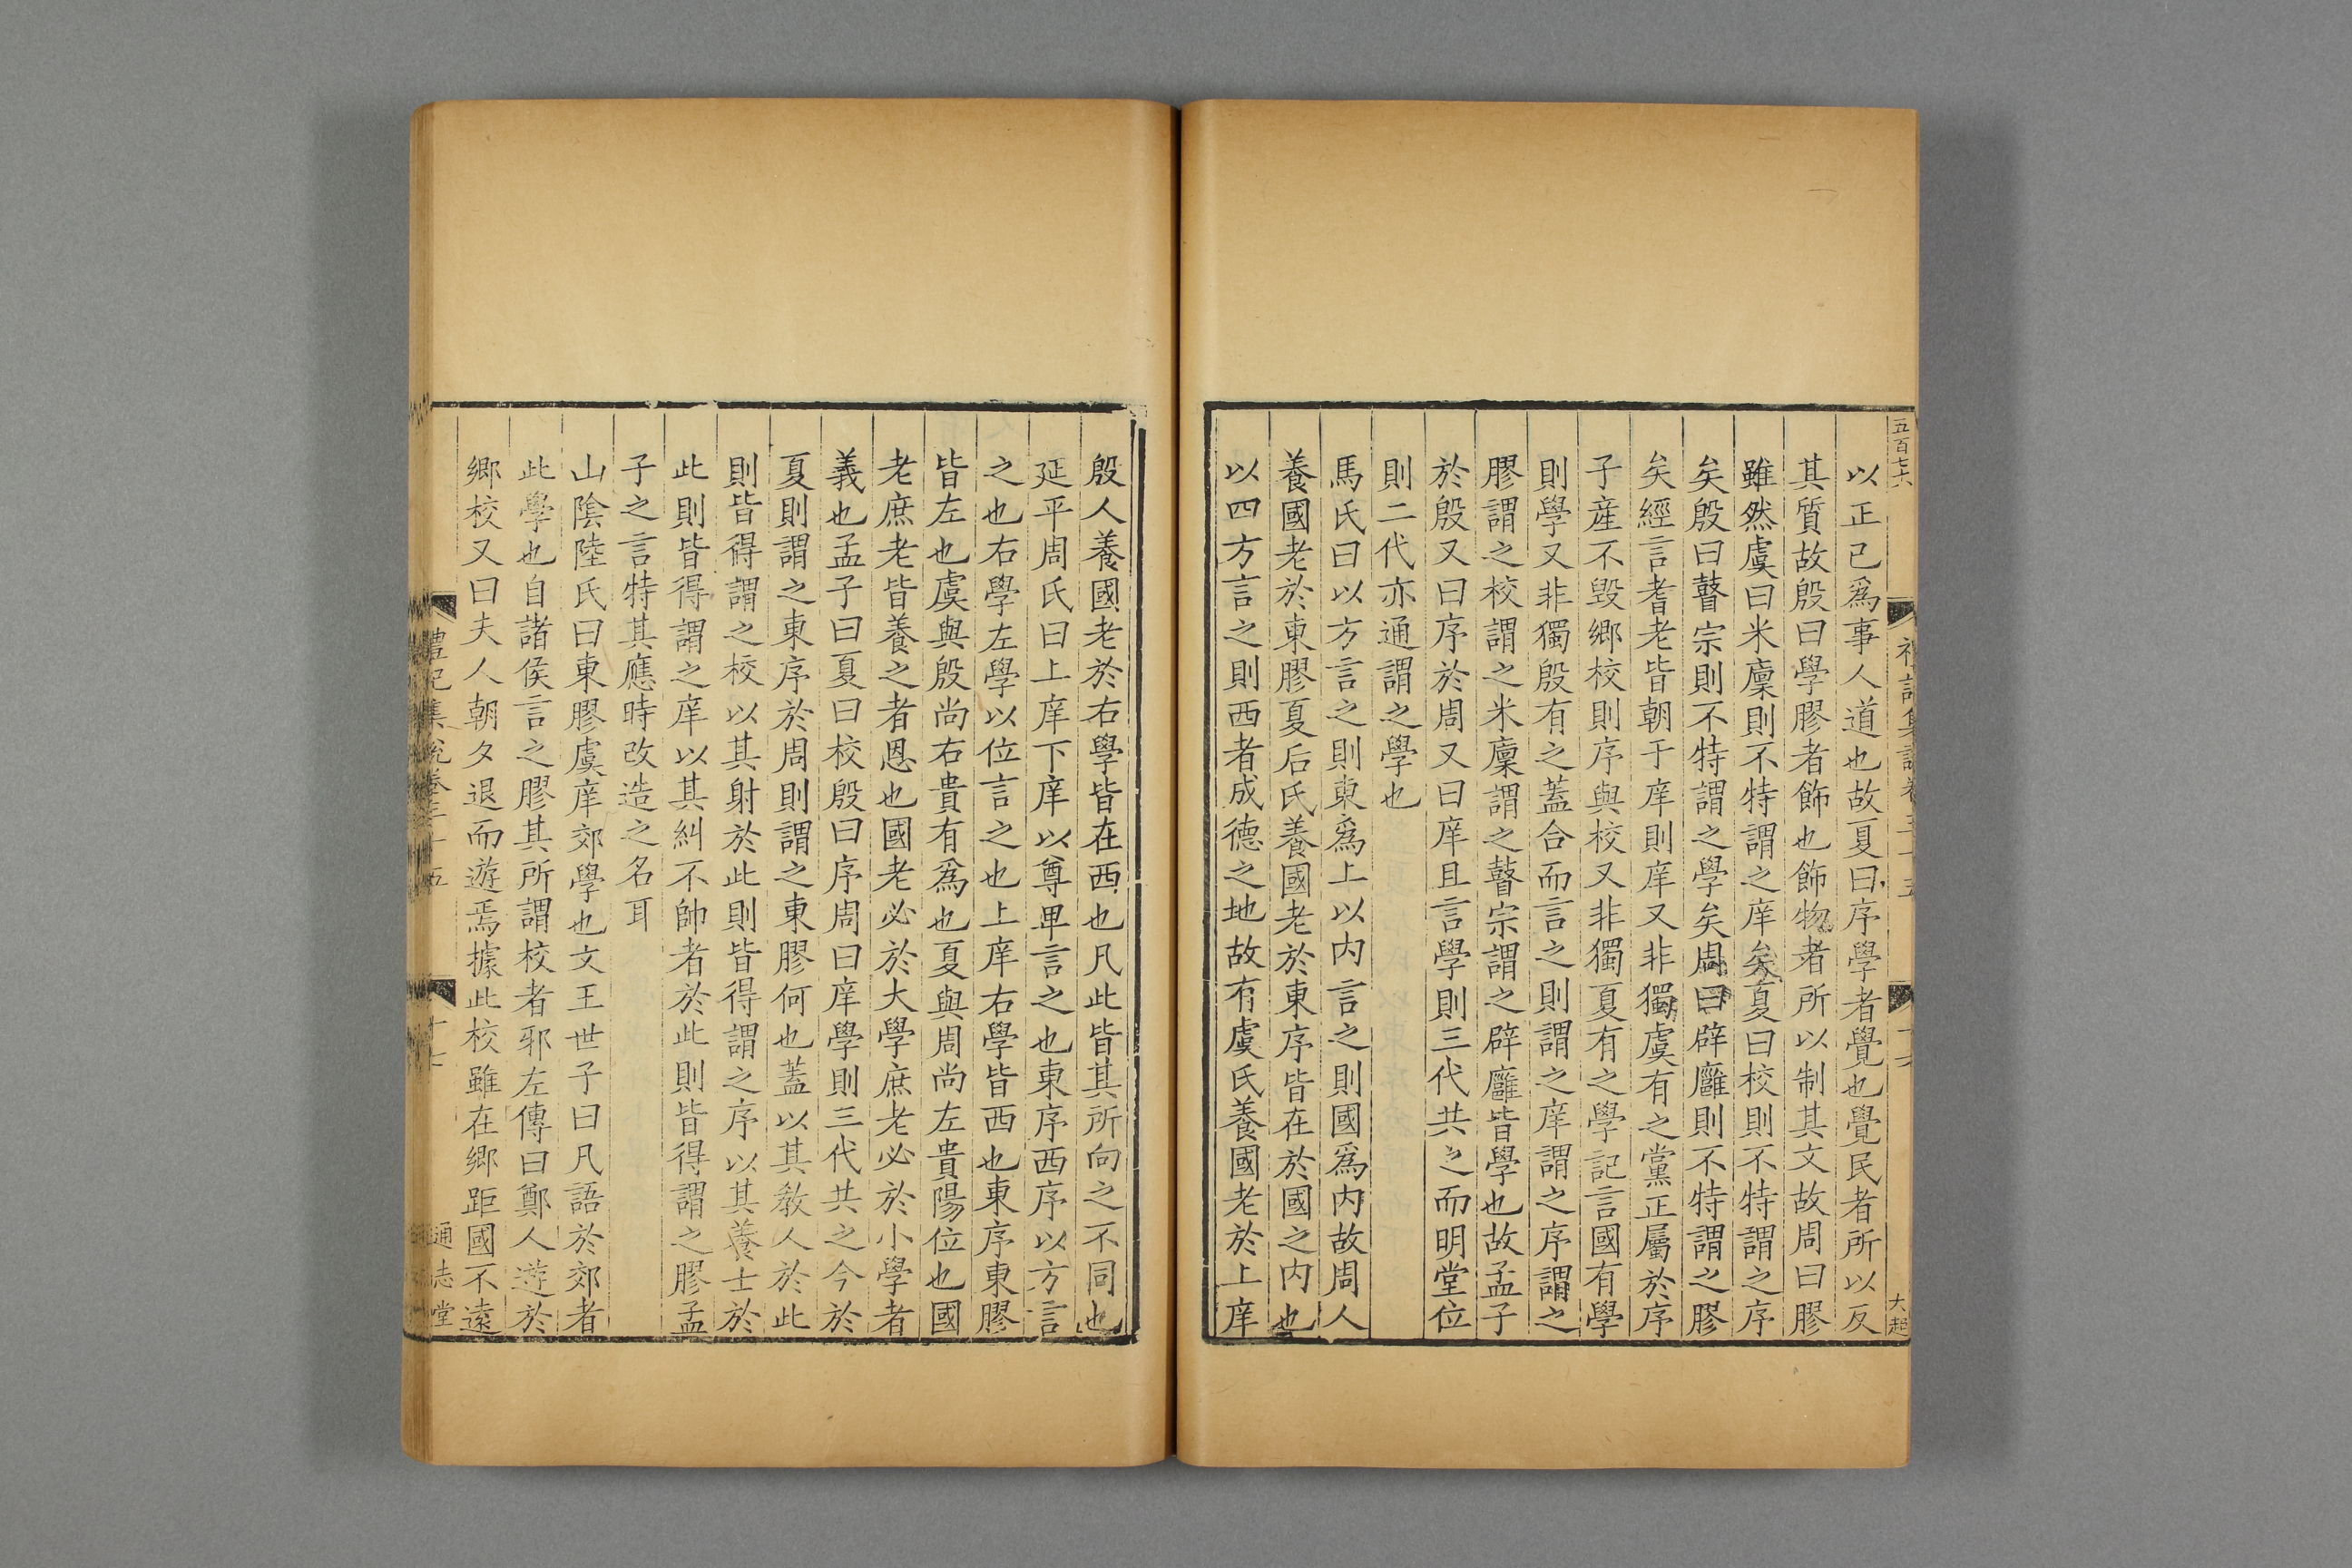 五百七十六
禮記集說卷三十五
十六
大超
以正已爲事人道也故夏曰序學者覺也覺民者所以反
其質故殷曰學膠者飾也飾物者所以制其文故周曰膠
雖然虞曰米廩則不特謂之庠矣夏曰校則不特謂之序
矣殷曰瞽宗則不特謂之學矣周曰辟廱則不特謂之膠
矣經言耆老皆朝于庠則庠又非獨虞有之黨正屬於序
子產不毀鄉校則序與校又非獨夏有之學記言國有學
則學又非獨殷有之蓋合而言之則謂之庠謂之序謂之
膠謂之校謂之米廩謂之瞽宗謂之辟廱皆學也故孟子
於殷又曰序於周又曰庠且言學則三代共之而明堂位
則二代亦通謂之學也
馬氏曰以方言之則東爲上以内言之則國爲内故周人
養國老於東膠夏后氏養國老於東序皆在於國之内也
以四方言之則西者成德之地故有虞氏養國老於上庠
殷人養國老於右學皆在西也凡此皆其所向之不同也
延平周氏曰上庠下庠以尊卑言之也東序西序以方言
之也右學左學以位言之也上庠右學皆西也東序東膠
皆左也虞與殷尚右貴有爲也夏與周尚左貴陽位也國
老庶老皆養之者恩也國老必於大學庶老必於小學者
義也孟子曰夏曰校殷曰序周曰庠學則三代共之今於
夏則謂之東序於周則謂之東膠何也蓋以其教人於此
則皆得謂之校以其射於此則皆得謂之序以其養士於
此則皆得謂之庠以其糾不帥者於此則皆得謂之膠孟
子之言特其應時改造之名耳
山陰陸氏曰東膠虞庠郊學也文王世子曰凡語於郊者
此學也自諸侯言之膠其所謂校者邪左傳曰鄭人遊於
鄉校又曰夫人朝夕退而遊焉據此校雖在鄉距國不遠
禮記集說卷三十五
十七
通志堂